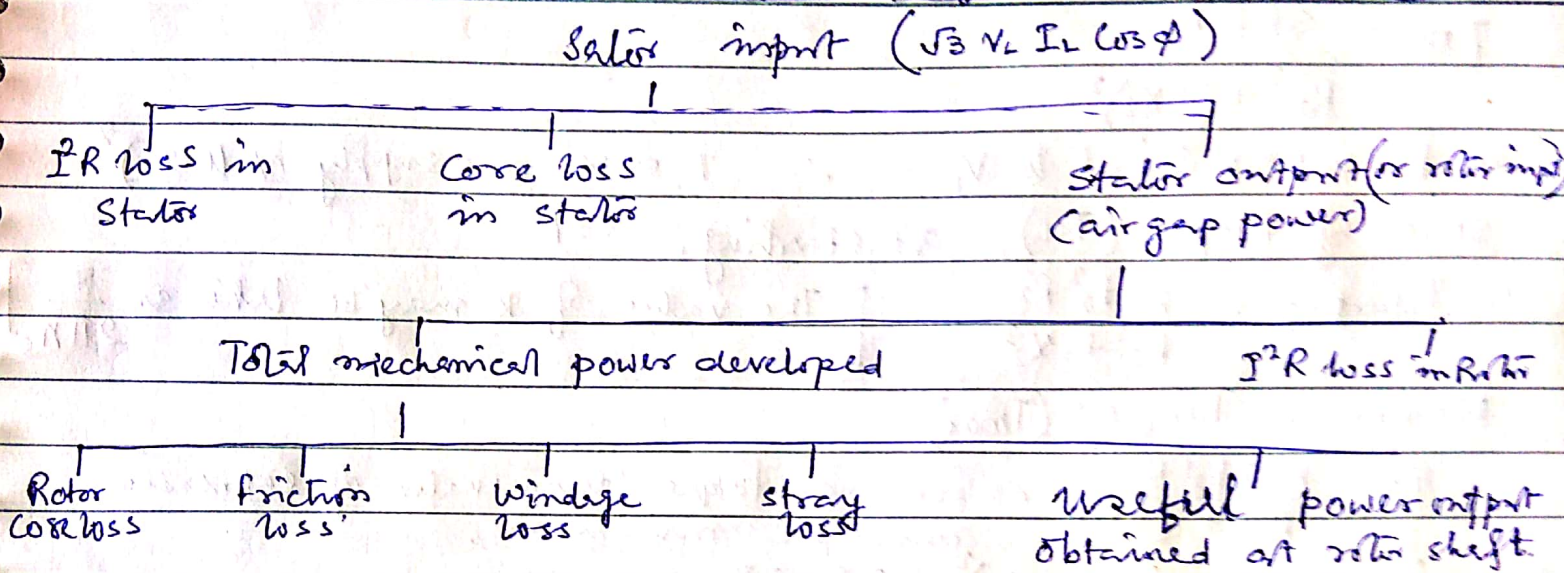 Sator input (√3 VL IL Cos φ)
I²R loss in Stator
Core loss in stator
Stator output (or rotor inp)
(air gap power)
Total mechanical power developed
I²R loss in Rotor
Rotor core loss
friction loss
windage loss
stray loss
useful power output
obtained at rotor shaft.